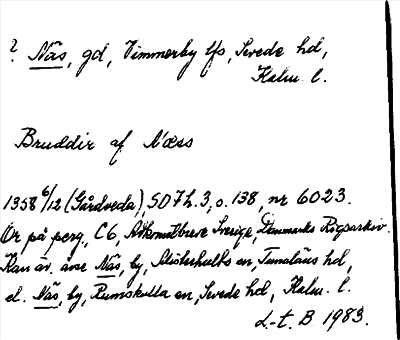 ? Näs, gd, Vimmerby lfs, Sevede hd,
Kalm. l.
Bruddir af Næss
1358 6/12 (Gårdveda), SD 7 h. 3, s. 138, nr 6023.
Or på perg., C6, Adkomstbreve Sverige, Danmarks Rigsarkiv.
Kan äv. avse Näs, by, Slisterhults sn, Tunaläns hd,
el. Näs, by, Rumskulla sn, Sevede hd, Kalm. l.
L-t. B 1983.